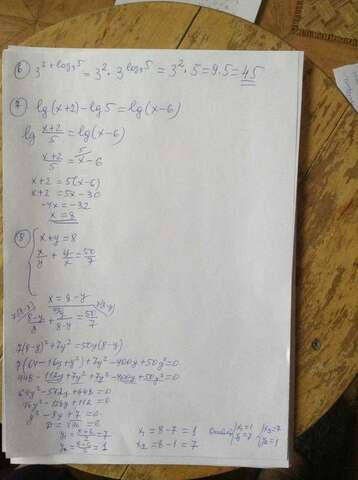 ⑥ 3^{2+log₃5} = 3² · 3^{log₃5} = 3² · 5 = 9 · 5 = 45
⑦ lg(x+2) - lg 5 = lg(x-6)
lg (x+2)/5 = lg(x-6)
(x+2)/5 = x - 6
x+2 = 5(x-6)
x+2 = 5x - 30
-4x = -32
x = 8
⑧ { x+y = 8
x/y + y/x = 50/7
x = 8 - y
(8-y)/y + y/(8-y) = 50/7
7(8-y)² + 7y² = 50y(8-y)
7(64 - 16y + y²) + 7y² - 400y + 50y² = 0
448 - 112y + 7y² + 7y² - 400y + 50y² = 0
64y² - 512y + 448 = 0
y² - 8y + 7 = 0
y₁ = 7 x₁ = 8 - 7 = 1
y₂ = 1 x₂ = 8 - 1 = 7